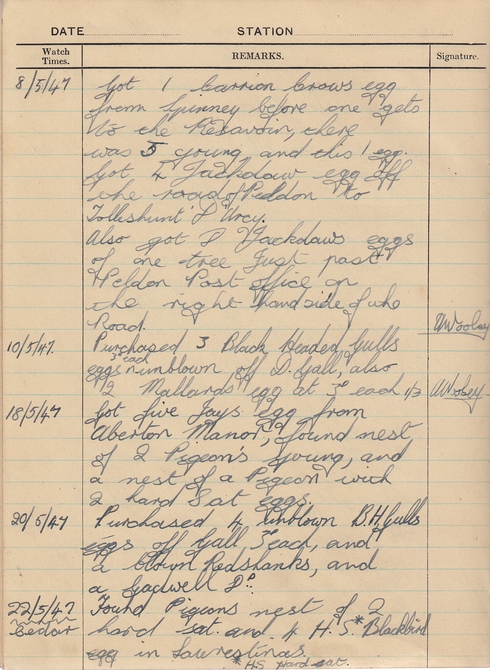 DATE STATION
Watch Times. REMARKS. Signature.
8/5/47 Got 1 Carrion Crows egg
from Spinney before one gets
to the Resavoir, there
was 5 young and this 1 egg.
Got 4 Jackdaw egg off
the road of Peldon to
Tolleshunt D'Urcy.
Also got 2 Jackdaws eggs
of one tree Just past
Peldon Post office on
the right hand side of the
Road. Woolsey
10/5/47. Purchased 3 Black Headed Gulls
eggs 3d each unblown off D. Gall, also
2 Mallards egg at 3d each 1/3
18/5/47 Got five Jays egg from
Aberton Manor, found nest
of 2 Pigeon's Young, and
a nest of a Pigeon with
2 hard Sat eggs.
20/5/47 Purchased 4 unblown B.H. Gulls
eggs off Gall 3d each, and
a blown Redshanks, and
a Gadwell
22/5/47 Found Pigeons nest of 2
Cedair hard sat. and 4 H.S* Blackbird
egg in Laurestinas.
*HS Hard sat.